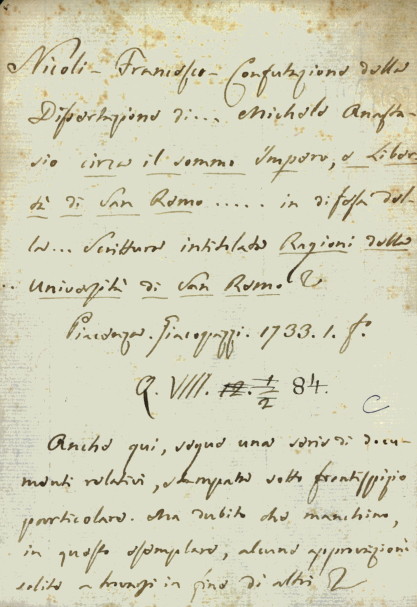 Nicoli - Francesco - Confutazione della
Dissertazione di... Michele Anasta-
sio circa il sommo Impero, e Liber-
tà di San Remo ..... in difesa del-
la... Scrittura intitolata Ragioni della
Università di San Remo
Piacenza. Giacopazzi. 1733. 1. f.
Q. VIII. 12. 1/2 84.
Anche qui, segue una serie di docu-
menti relativi, stampati sotto frontispizio
particolare. Ma dubito che manchino,
in questo esemplare, alcune approvazioni
solite a trovarsi in fine di altri